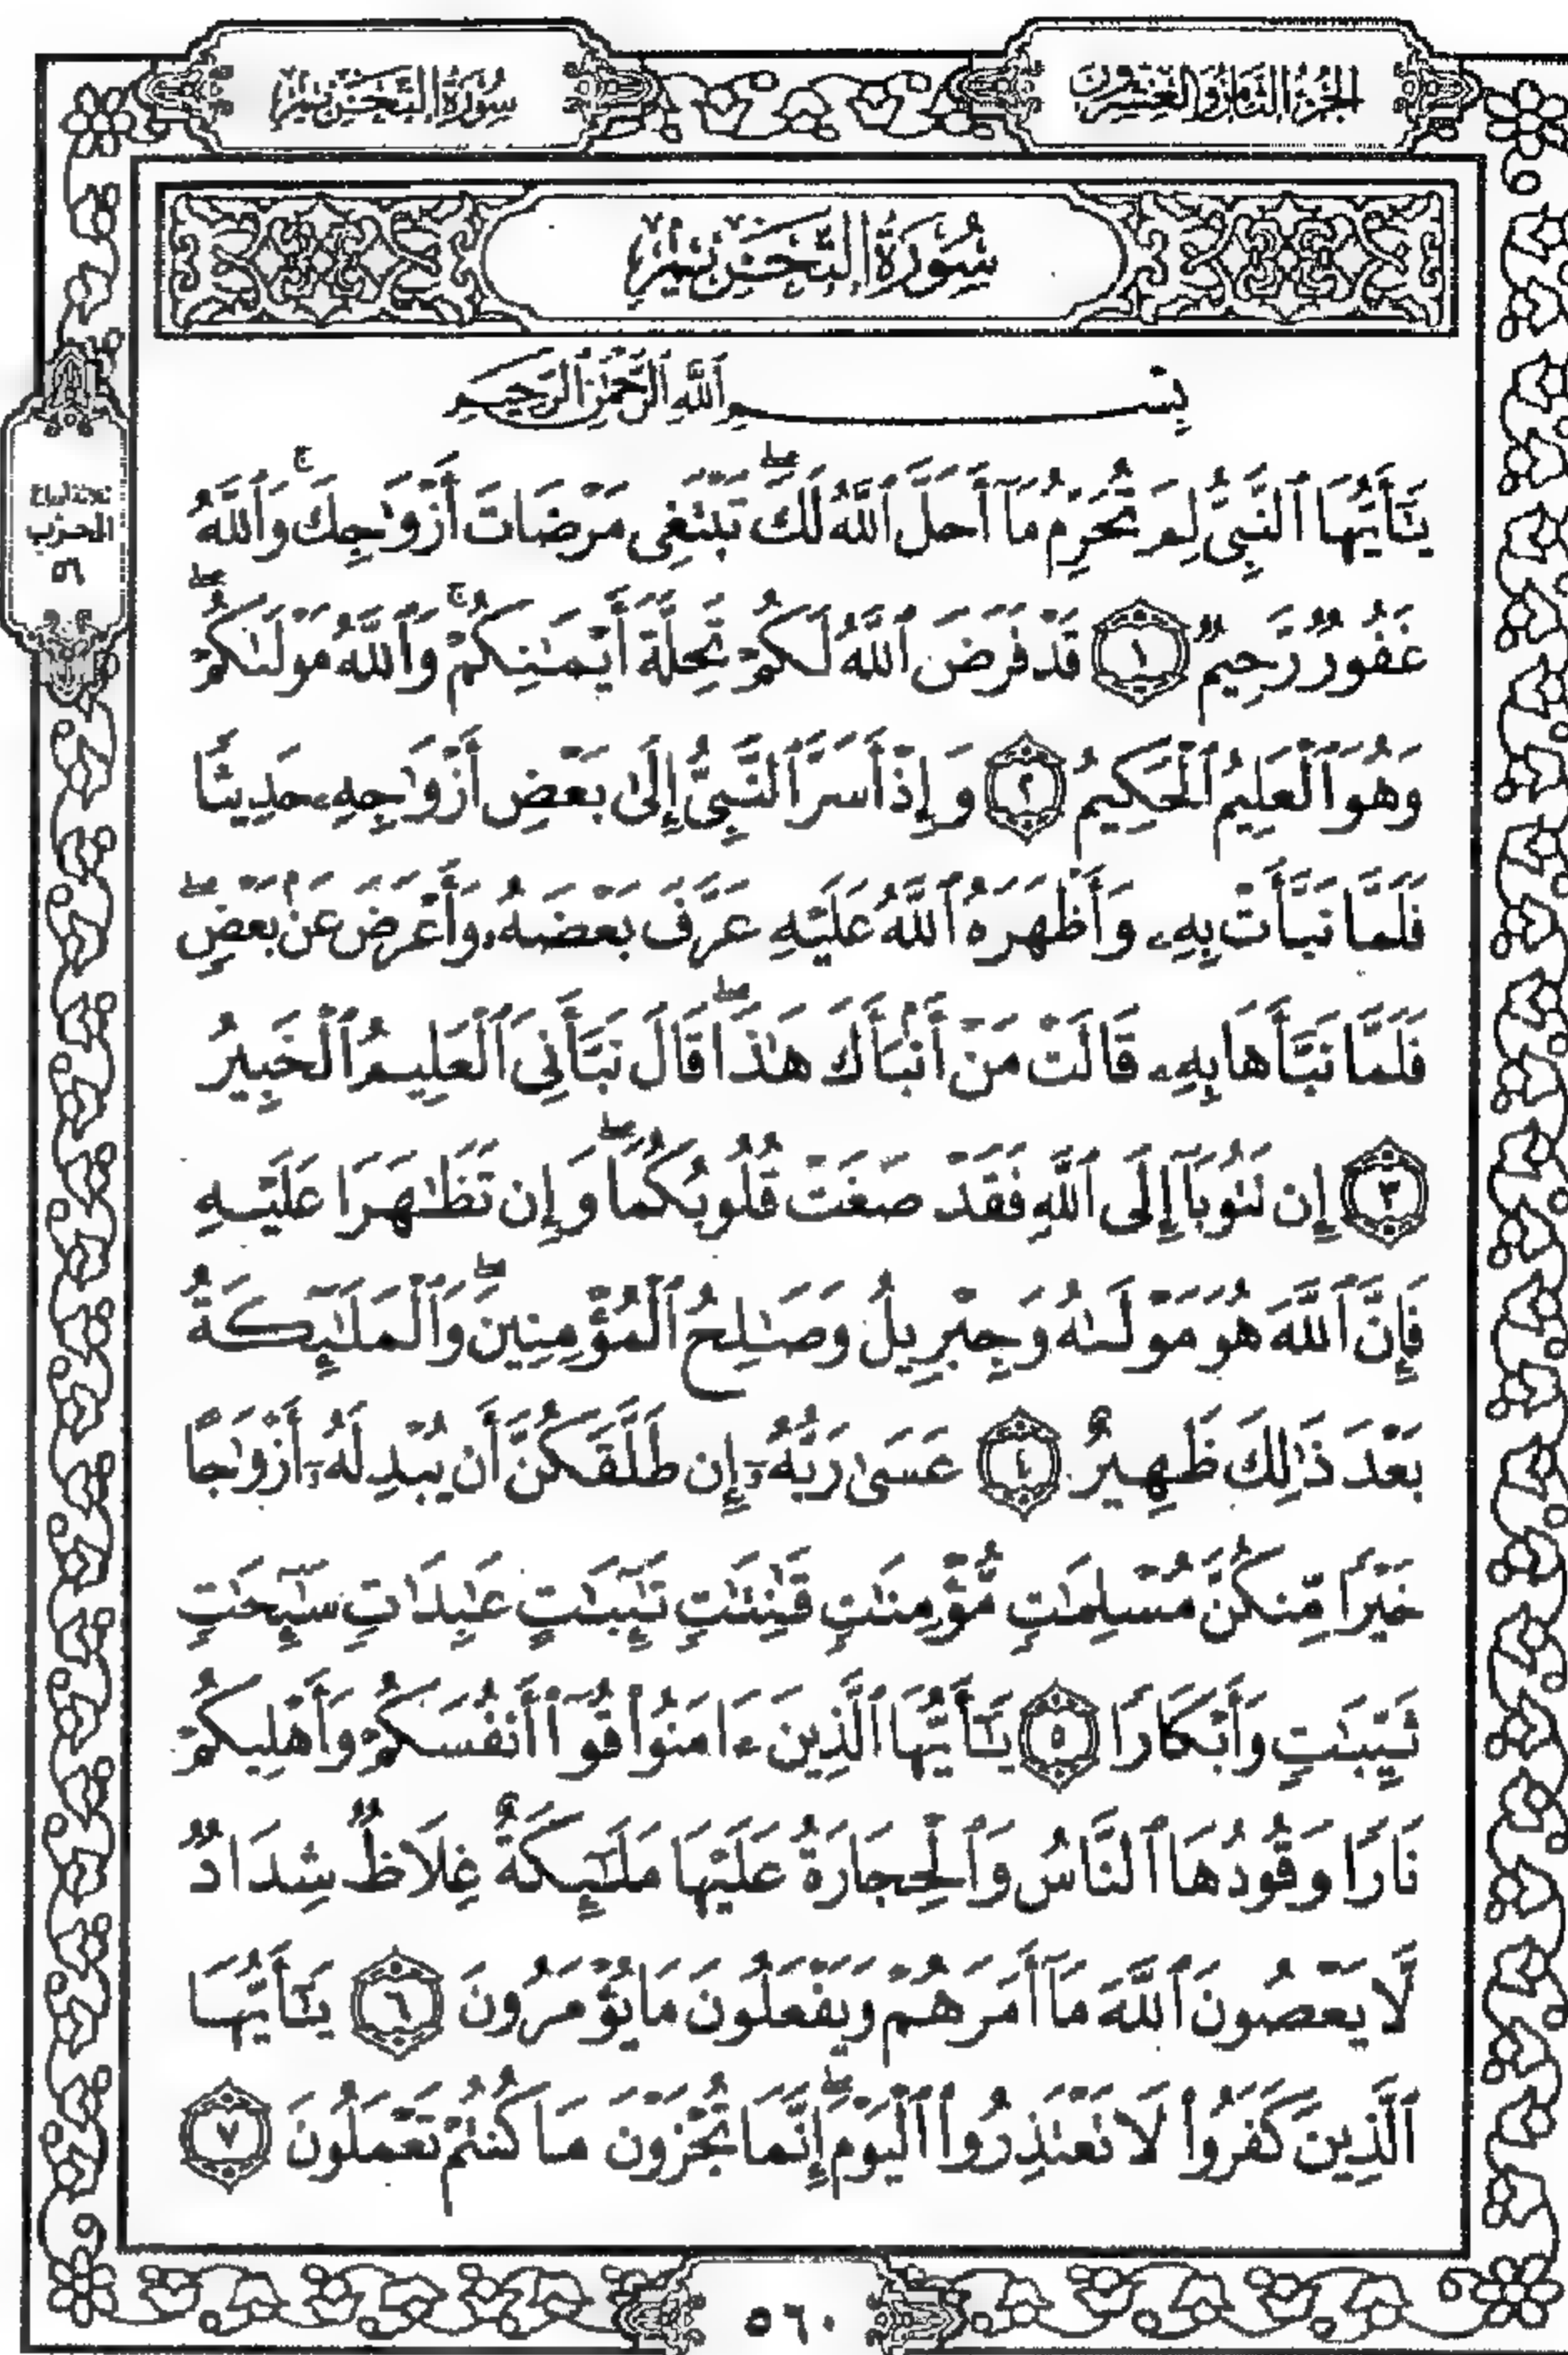 الجزء الثامن والعشرون
سورة التحريم
سُورَةُ التَّحْرِيمِ
بِسْمِ ٱللَّهِ ٱلرَّحْمَٰنِ ٱلرَّحِيمِ
يَٰٓأَيُّهَا ٱلنَّبِىُّ لِمَ تُحَرِّمُ مَآ أَحَلَّ ٱللَّهُ لَكَ ۖ تَبْتَغِى مَرْضَاتَ أَزْوَٰجِكَ ۚ وَٱللَّهُ
غَفُورٌ رَّحِيمٌ ١ قَدْ فَرَضَ ٱللَّهُ لَكُمْ تَحِلَّةَ أَيْمَٰنِكُمْ ۚ وَٱللَّهُ مَوْلَىٰكُمْ ۖ
وَهُوَ ٱلْعَلِيمُ ٱلْحَكِيمُ ٢ وَإِذْ أَسَرَّ ٱلنَّبِىُّ إِلَىٰ بَعْضِ أَزْوَٰجِهِۦ حَدِيثًا
فَلَمَّا نَبَّأَتْ بِهِۦ وَأَظْهَرَهُ ٱللَّهُ عَلَيْهِ عَرَّفَ بَعْضَهُۥ وَأَعْرَضَ عَنۢ بَعْضٍ ۖ
فَلَمَّا نَبَّأَهَا بِهِۦ قَالَتْ مَنْ أَنۢبَأَكَ هَٰذَا ۖ قَالَ نَبَّأَنِىَ ٱلْعَلِيمُ ٱلْخَبِيرُ
٣ إِن تَتُوبَآ إِلَى ٱللَّهِ فَقَدْ صَغَتْ قُلُوبُكُمَا ۖ وَإِن تَظَٰهَرَا عَلَيْهِ
فَإِنَّ ٱللَّهَ هُوَ مَوْلَىٰهُ وَجِبْرِيلُ وَصَٰلِحُ ٱلْمُؤْمِنِينَ ۖ وَٱلْمَلَٰٓئِكَةُ
بَعْدَ ذَٰلِكَ ظَهِيرٌ ٤ عَسَىٰ رَبُّهُۥٓ إِن طَلَّقَكُنَّ أَن يُبْدِلَهُۥٓ أَزْوَٰجًا
خَيْرًا مِّنكُنَّ مُسْلِمَٰتٍ مُّؤْمِنَٰتٍ قَٰنِتَٰتٍ تَٰٓئِبَٰتٍ عَٰبِدَٰتٍ سَٰٓئِحَٰتٍ
ثَيِّبَٰتٍ وَأَبْكَارًا ٥ يَٰٓأَيُّهَا ٱلَّذِينَ ءَامَنُوا۟ قُوٓا۟ أَنفُسَكُمْ وَأَهْلِيكُمْ
نَارًا وَقُودُهَا ٱلنَّاسُ وَٱلْحِجَارَةُ عَلَيْهَا مَلَٰٓئِكَةٌ غِلَاظٌ شِدَادٌ
لَّا يَعْصُونَ ٱللَّهَ مَآ أَمَرَهُمْ وَيَفْعَلُونَ مَا يُؤْمَرُونَ ٦ يَٰٓأَيُّهَا
ٱلَّذِينَ كَفَرُوا۟ لَا تَعْتَذِرُوا۟ ٱلْيَوْمَ ۖ إِنَّمَا تُجْزَوْنَ مَا كُنتُمْ تَعْمَلُونَ ٧
الحزب
٥٦
٥٦٠